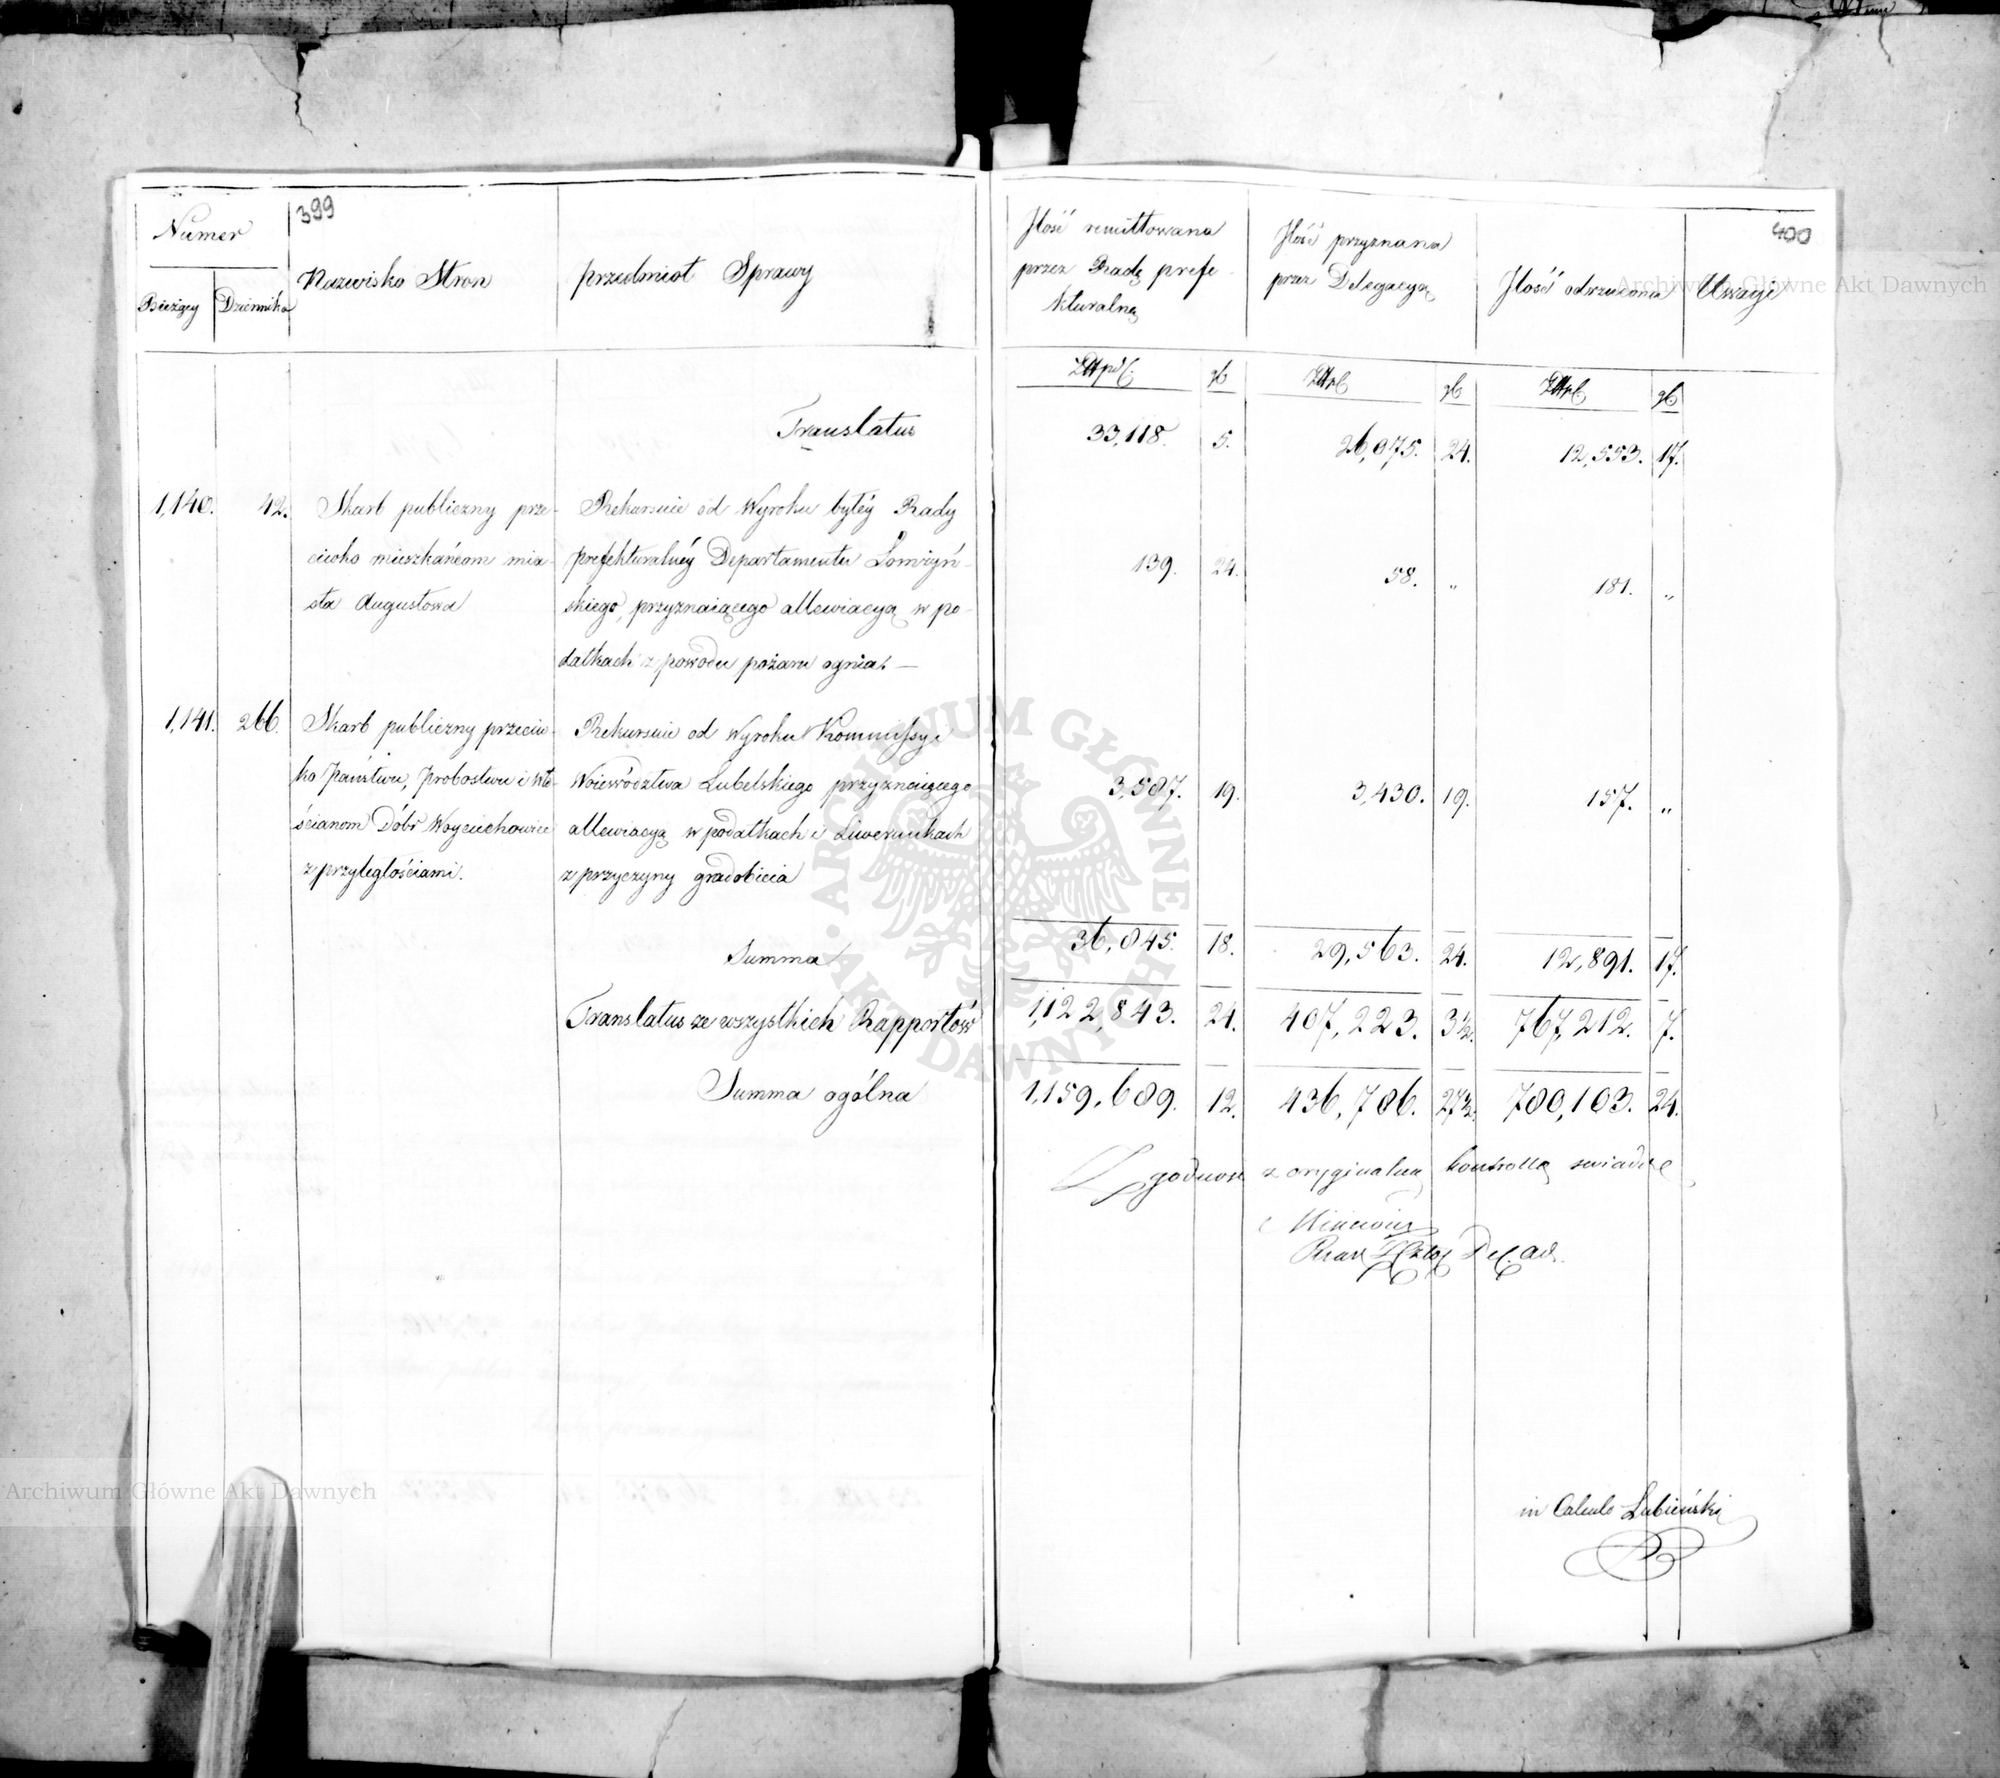 399
Numer
Nazwisko Stron
przedmiot Sprawy
Bieżący
Dziennika
Translatus
1,140. 42. Skarb publiczny prze-
ciwko mieszkańcom mia-
sta Augustowa
Rekursuie od Wyroku byłéy Rady
prefekturalnéy Departamentu Łomżyń-
skiego, przyznaiącego allewiacyą w po-
datkach z powodu pożaru ognia. —
1,141. 266. Skarb publiczny przeciw-
ko Państwu, Probostwu i Wło-
ścianom Dóbr Woyciechowice
z przyległościami.
Rekursuie od Wyroku Kommissyi
Woiewództwa Lubelskiego przyznaiącego
allewiacyą w podatkach i Liwerunkach
z przyczyny gradobicia
Summa
Translatus ze wszystkich Rapportów
Summa ogólna
400
Ilość remittowana
przez Radę prefe-
kturalną
Ilość przyznana
przez Delegacyą
Ilość odrzucona
Uwagi
33,118. 5. 26,075. 24. 12,553. 17.
139. 24. 58. „ 181. „
3,587. 19. 3,430. 19. 157. „
36,845. 18. 29,563. 24. 12,891. 17.
1,122,843. 24. 407,223. 3½. 767,212. 7.
1,159,689. 12. 436,786. 27½. 780,103. 24.
Zgodność z oryginalną kontrollą świadczę
in Calculo Łubieński
Archiwum Główne Akt Dawnych
ARCHIWUM GŁÓWNE
AKT DAWNYCH
Archiwum Główne Akt Dawnych